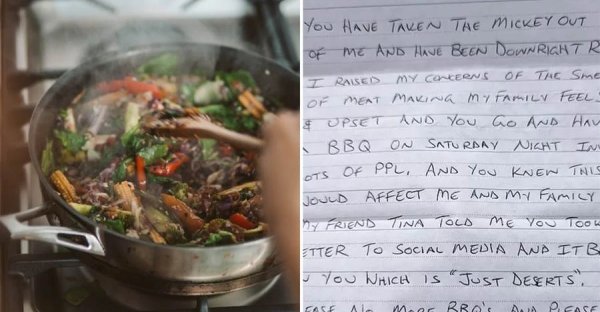 YOU HAVE TAKEN THE MICKEY OUT
OF ME AND HAVE BEEN DOWNRIGHT
I RAISED MY CONCERNS OF THE
OF MEAT MAKING MY FAMILY FEEL
& UPSET AND YOU GO AND
BBQ ON SATURDAY NIGHT
OF PPL, AND YOU KNEW THIS
AFFECT ME AND MY FAMILY
MY FRIEND TINA TOLD ME YOU TOOK
TO SOCIAL MEDIA AND IT
YOU WHICH IS "JUST DESERTS".
NO MORE BBQ'S AND PLEASE